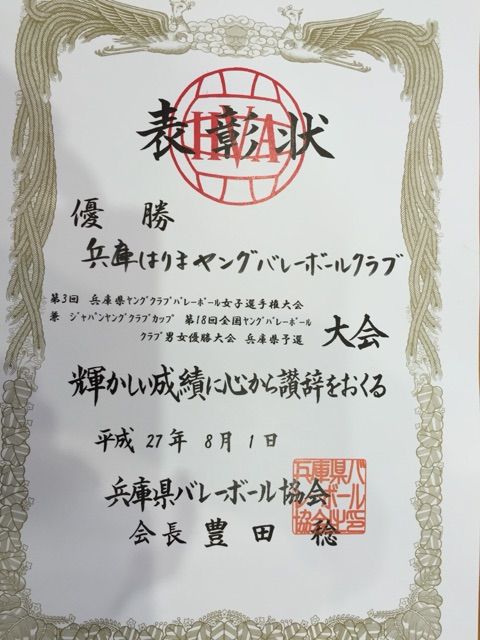 表彰状
HVA
優勝
兵庫はりまヤングバレーボールクラブ
第3回 兵庫県ヤングクラブバレーボール女子選手権大会
兼 ジャパンヤングクラブカップ 第18回全国ヤングバレーボール
クラブ男女優勝大会 兵庫県予選
大会
輝かしい成績に心から讃辞をおくる
平成27年8月1日
兵庫県バレーボール協会
会長 豊田 稔
兵庫県バ
レーボール
協会之印